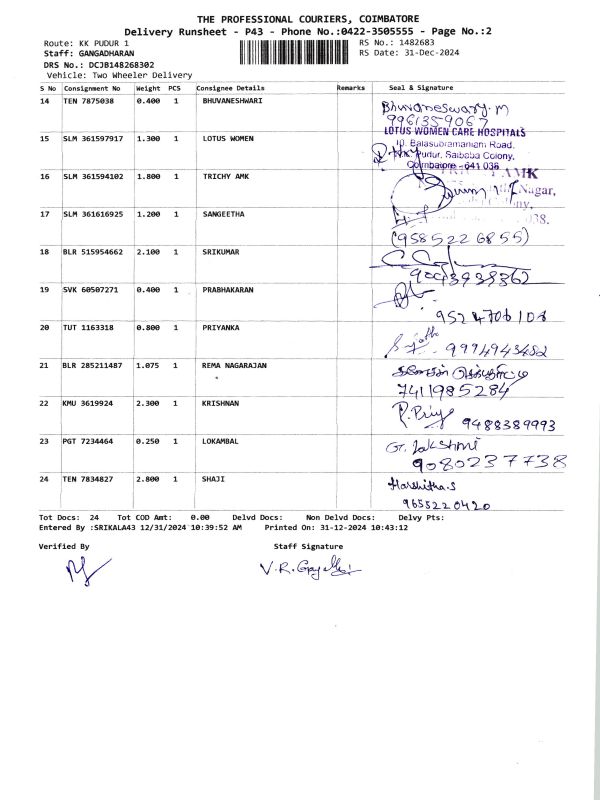 THE PROFESSIONAL COURIERS, COIMBATORE
Delivery Runsheet - P43 - Phone No.:0422-3505555 - Page No.:2
Route: KK PUDUR 1 RS No.: 1482683
Staff: GANGADHARAN RS Date: 31-Dec-2024
DRS No.: DCJB148268302
Vehicle: Two Wheeler Delivery
S No Consignment No Weight PCS Consignee Details Remarks Seal & Signature
14 TEN 7875038 0.400 1 BHUVANESHWARI Bhuvaneswary.M
9961359067
15 SLM 361597917 1.300 1 LOTUS WOMEN LOTUS WOMEN CARE HOSPITALS
Balasubramaniam Road,
Pudur, Saibaba Colony,
Coimbatore - 641 038
16 SLM 361594102 1.800 1 TRICHY AMK AMK
Nagar,
17 SLM 361616925 1.200 1 SANGEETHA 038.
(9585226855)
18 BLR 515954662 2.100 1 SRIKUMAR
19 SVK 60507271 0.400 1 PRABHAKARAN
20 TUT 1163318 0.800 1 PRIYANKA
21 BLR 285211487 1.075 1 REMA NAGARAJAN
7411985284
22 KMU 3619924 2.300 1 KRISHNAN P. Priya
9488389993
23 PGT 7234464 0.250 1 LOKAMBAL G. Lakshmi
9080237738
24 TEN 7834827 2.800 1 SHAJI Harshitha.S
9655220420
Tot Docs: 24 Tot COD Amt: 0.00 Delvd Docs: Non Delvd Docs: Delvy Pts:
Entered By :SRIKALA43 12/31/2024 10:39:52 AM Printed On: 31-12-2024 10:43:12
Verified By Staff Signature